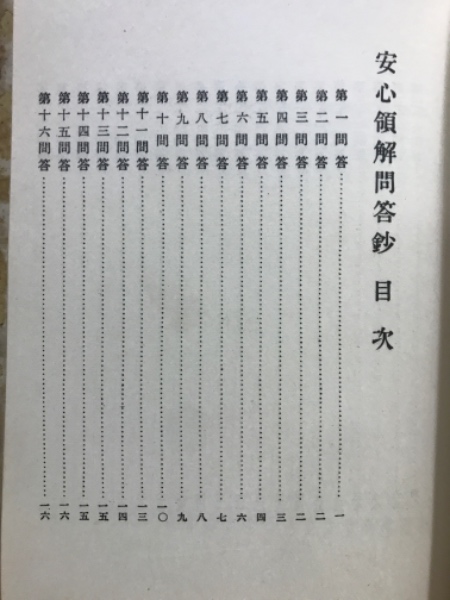 安心領解問答鈔 目次
第一問答……一
第二問答……二
第三問答……二
第四問答……三
第五問答……四
第六問答……六
第七問答……七
第八問答……八
第九問答……九
第十問答……一〇
第十一問答……一三
第十二問答……一四
第十三問答……一五
第十四問答……一五
第十五問答……一六
第十六問答……一六